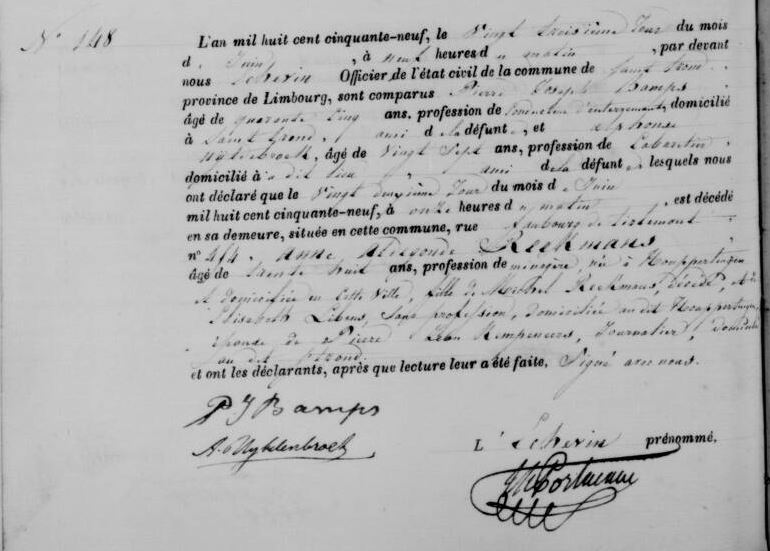 N° 148
L'an mil huit cent cinquante-neuf, le Vingt troisième Jour du mois
d e Juin , à neuf heures d u matin , par devant
nous Echevin Officier de l'état civil de la commune de Saint Trond
province de Limbourg, sont comparus Pierre Joseph Bamps
âgé de quarante Cinq ans, profession de Conducteur d'enterrement, domicilié
à Saint Trond, ami d e la défunte, et Alphonse
, âgé de Vingt Sept ans, profession de Cabaretier
domicilié à u dit lieu , ami de la défunte lesquels nous
ont déclaré que le Vingt deuxième Jour du mois d e Juin
mil huit cent cinquante-neuf, à onze heures d u matin , est décédé
en sa demeure, située en cette commune, rue faubourg de tirlemont
n° 454, anne aldegonde Reekmans
âgé de trente huit ans, profession de ménagère, née à Houppertingen
et domiciliée en Cette Ville, fille de Michel Reekmans, décédé, et
Elisabeth , Sans profession, domiciliée au dit Houppertingen,
épouse de Pierre Léon Kempeneers, Journalier, domicilié
au dit St trond.
et ont les déclarants, après que lecture leur a été faite, Signé avec nous.
P J Bamps
A. Uyttenbroek
L' Echevin prénommé.